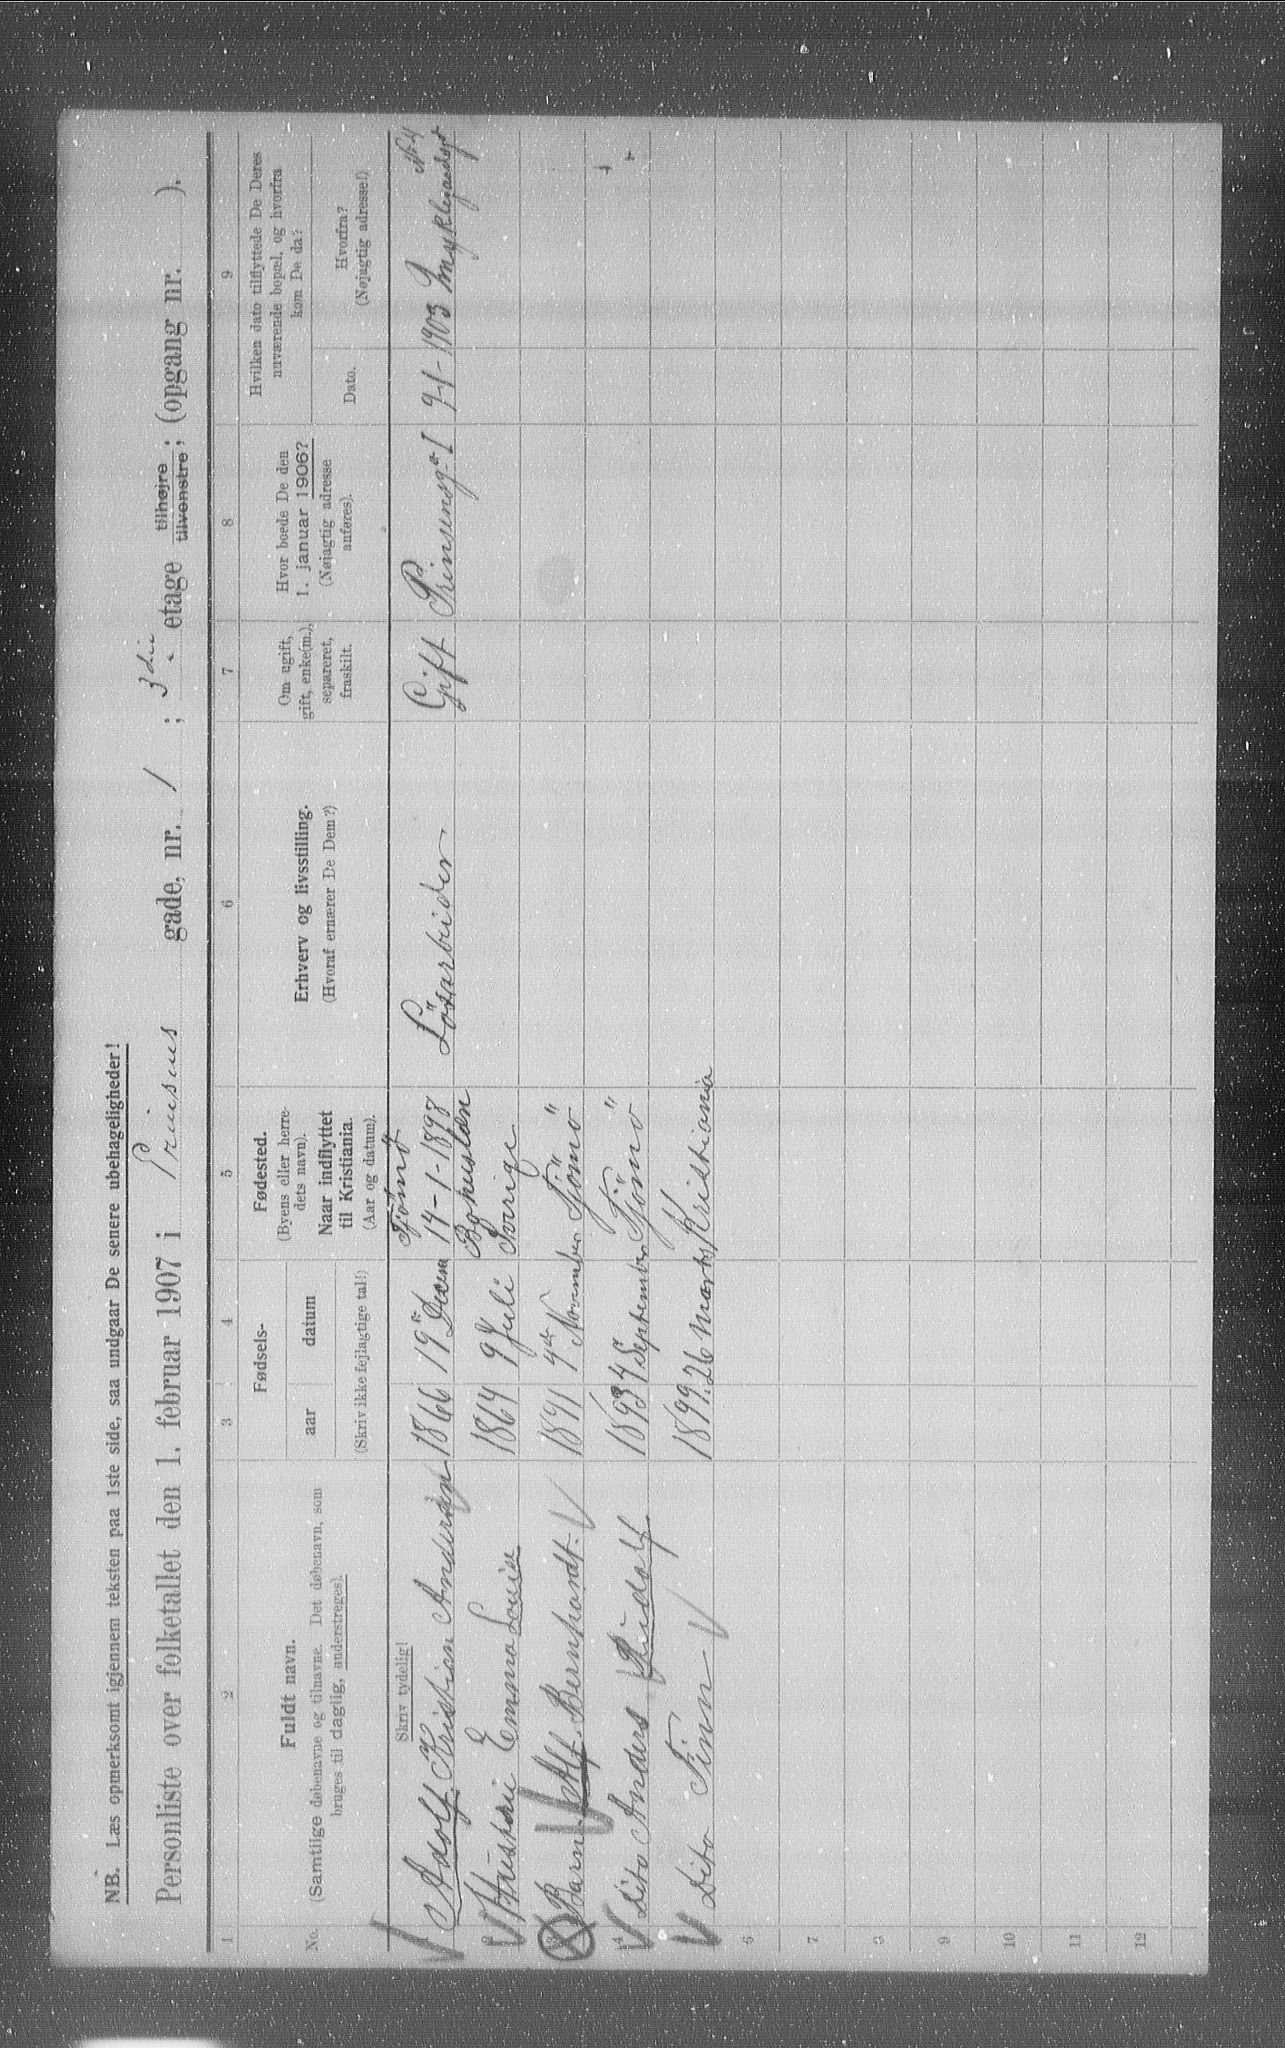 NB. Læs opmerksomt igjennem teksten paa 1ste side, saa undgaar De senere ubehageligheder!
Personliste over folketallet den 1. februar 1907 i Prinsens gade, nr. 1 ; 3die etage tilhøjre ; (opgang nr. ).
tilvenstre;
1 2 3 4 5 6 7 8 9
No.
Fuldt navn.
(Samtlige døbenavne og tilnavne. Det døbenavn, som
bruges til daglig, understreges).
Fødsels-
aar datum
(Skriv ikke fejlagtige tal!)
Fødested.
(Byens eller herre-
dets navn).
Naar indflyttet
til Kristiania.
(Aar og datum).
Erhverv og livsstilling.
(Hvoraf ernærer De Dem?)
Om ugift,
gift, enke(m.),
separeret,
fraskilt.
Hvor boede De den
1. januar 1906?
(Nøjagtig adresse
anføres).
Hvilken dato tilflyttede De Deres
nuværende bopæl, og hvorfra
kom De da?
Dato.
Hvorfra?
(Nøjagtig adresse!)
Skriv tydelig!
Tjömö
Adolf Kristian Andersen 1866 19 Decem 14-1-1898 Lösarbeider Gift Prinsensg- I 1903 No 4
Bohuslän
2 Hustru Emma Louise 1864 9 Juli Sverige
3 Barn Alf Bernhardt 1891 7de November Tjömö "
4 Dito Anders Rudolf 1893 4 September Tjömö "
Dito Finn 1899. 26 Marts Kristiania
6
7
8
9
10
11
12